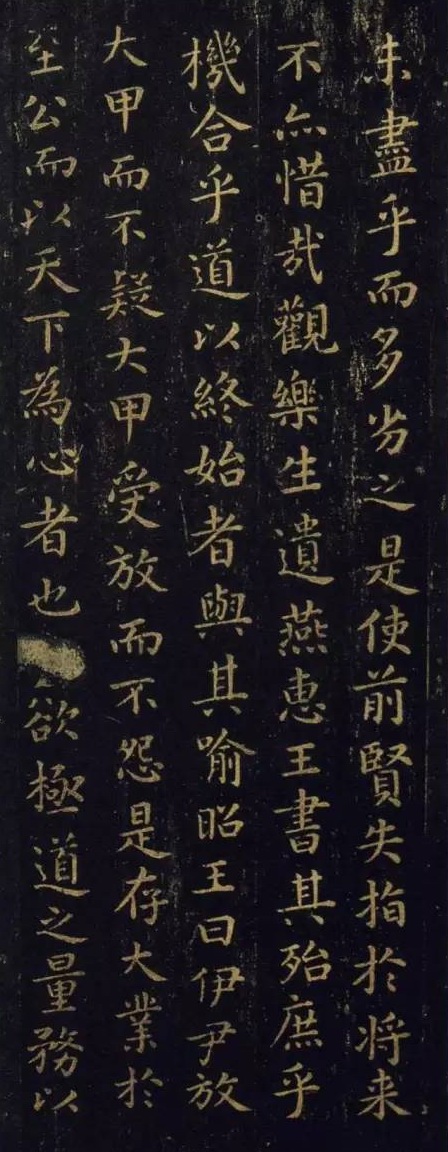 未盡乎而多劣之是使前賢失指於将来
不亦惜哉觀樂生遺燕惠王書其殆庶乎
機合乎道以終始者與其喻昭王曰伊尹放
大甲而不疑大甲受放而不怨是存大業於
至公而以天下為心者也欲極道之量務以